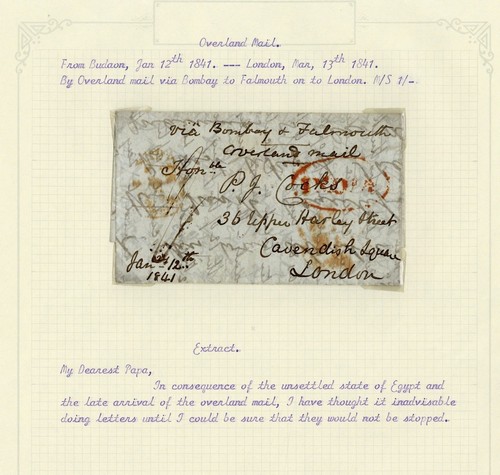 Overland Mail.
From Budaon, Jan 12th 1841. --- London, Mar, 13th 1841.
By Overland mail via Bombay to Falmouth on to London. M/S 1/-.
via Bombay & Falmouth
overland mail
Honble
P J. Cocks
36 Upper Harley Street
Cavendish Square
London
Jany 12th
1841
Extract.
My Dearest Papa,
In consequence of the unsettled state of Egypt and
the late arrival of the overland mail, I have thought it inadvisable
doing letters until I could be sure that they would not be stopped.